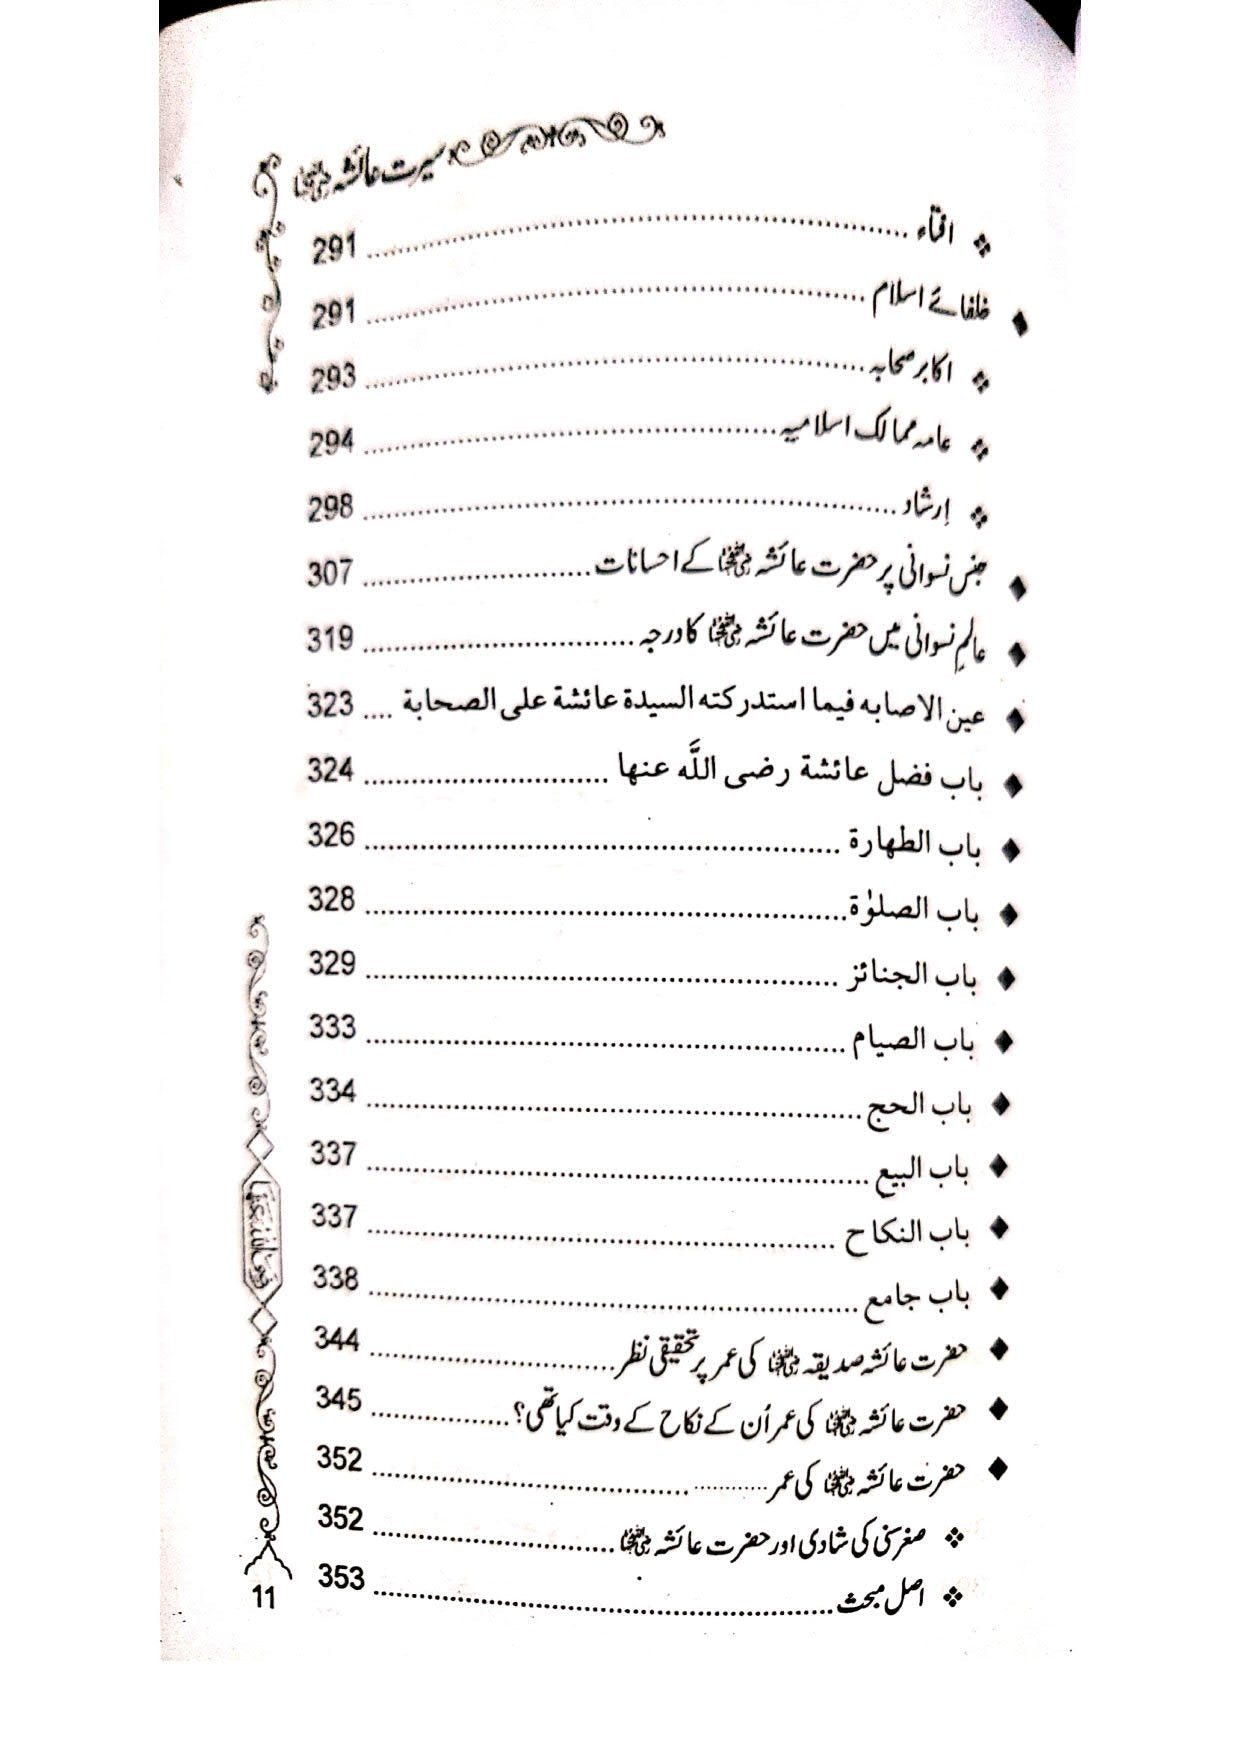 سیرت عائشہ رضی اللہ عنہا
❖ افتاء ........ 291
◆ خلفائے اسلام ........ 291
❖ اکابر صحابہ ........ 293
❖ عامہ ممالک اسلامیہ ........ 294
❖ اِرشاد ........ 298
◆ جنس نسوانی پر حضرت عائشہ رضی اللہ عنہا کے احسانات ........ 307
◆ عالمِ نسوانی میں حضرت عائشہ رضی اللہ عنہا کا درجہ ........ 319
◆ عين الاصابه فيما استدركته السيدة عائشة على الصحابة .... 323
◆ باب فضل عائشة رضى اللَّه عنها ........ 324
◆ باب الطهارة ........ 326
◆ باب الصلوٰة ........ 328
◆ باب الجنائز ........ 329
◆ باب الصيام ........ 333
◆ باب الحج ........ 334
◆ باب البيع ........ 337
◆ باب النكاح ........ 337
◆ باب جامع ........ 338
◆ حضرت عائشہ صدیقہ رضی اللہ عنہا کی عمر پر تحقیقی نظر ........ 344
◆ حضرت عائشہ رضی اللہ عنہا کی عمر اُن کے نکاح کے وقت کیا تھی؟ ........ 345
◆ حضرت عائشہ رضی اللہ عنہا کی عمر ........ 352
❖ صغر سنی کی شادی اور حضرت عائشہ رضی اللہ عنہا ........ 352
❖ اصل مبحث ........ 353
11